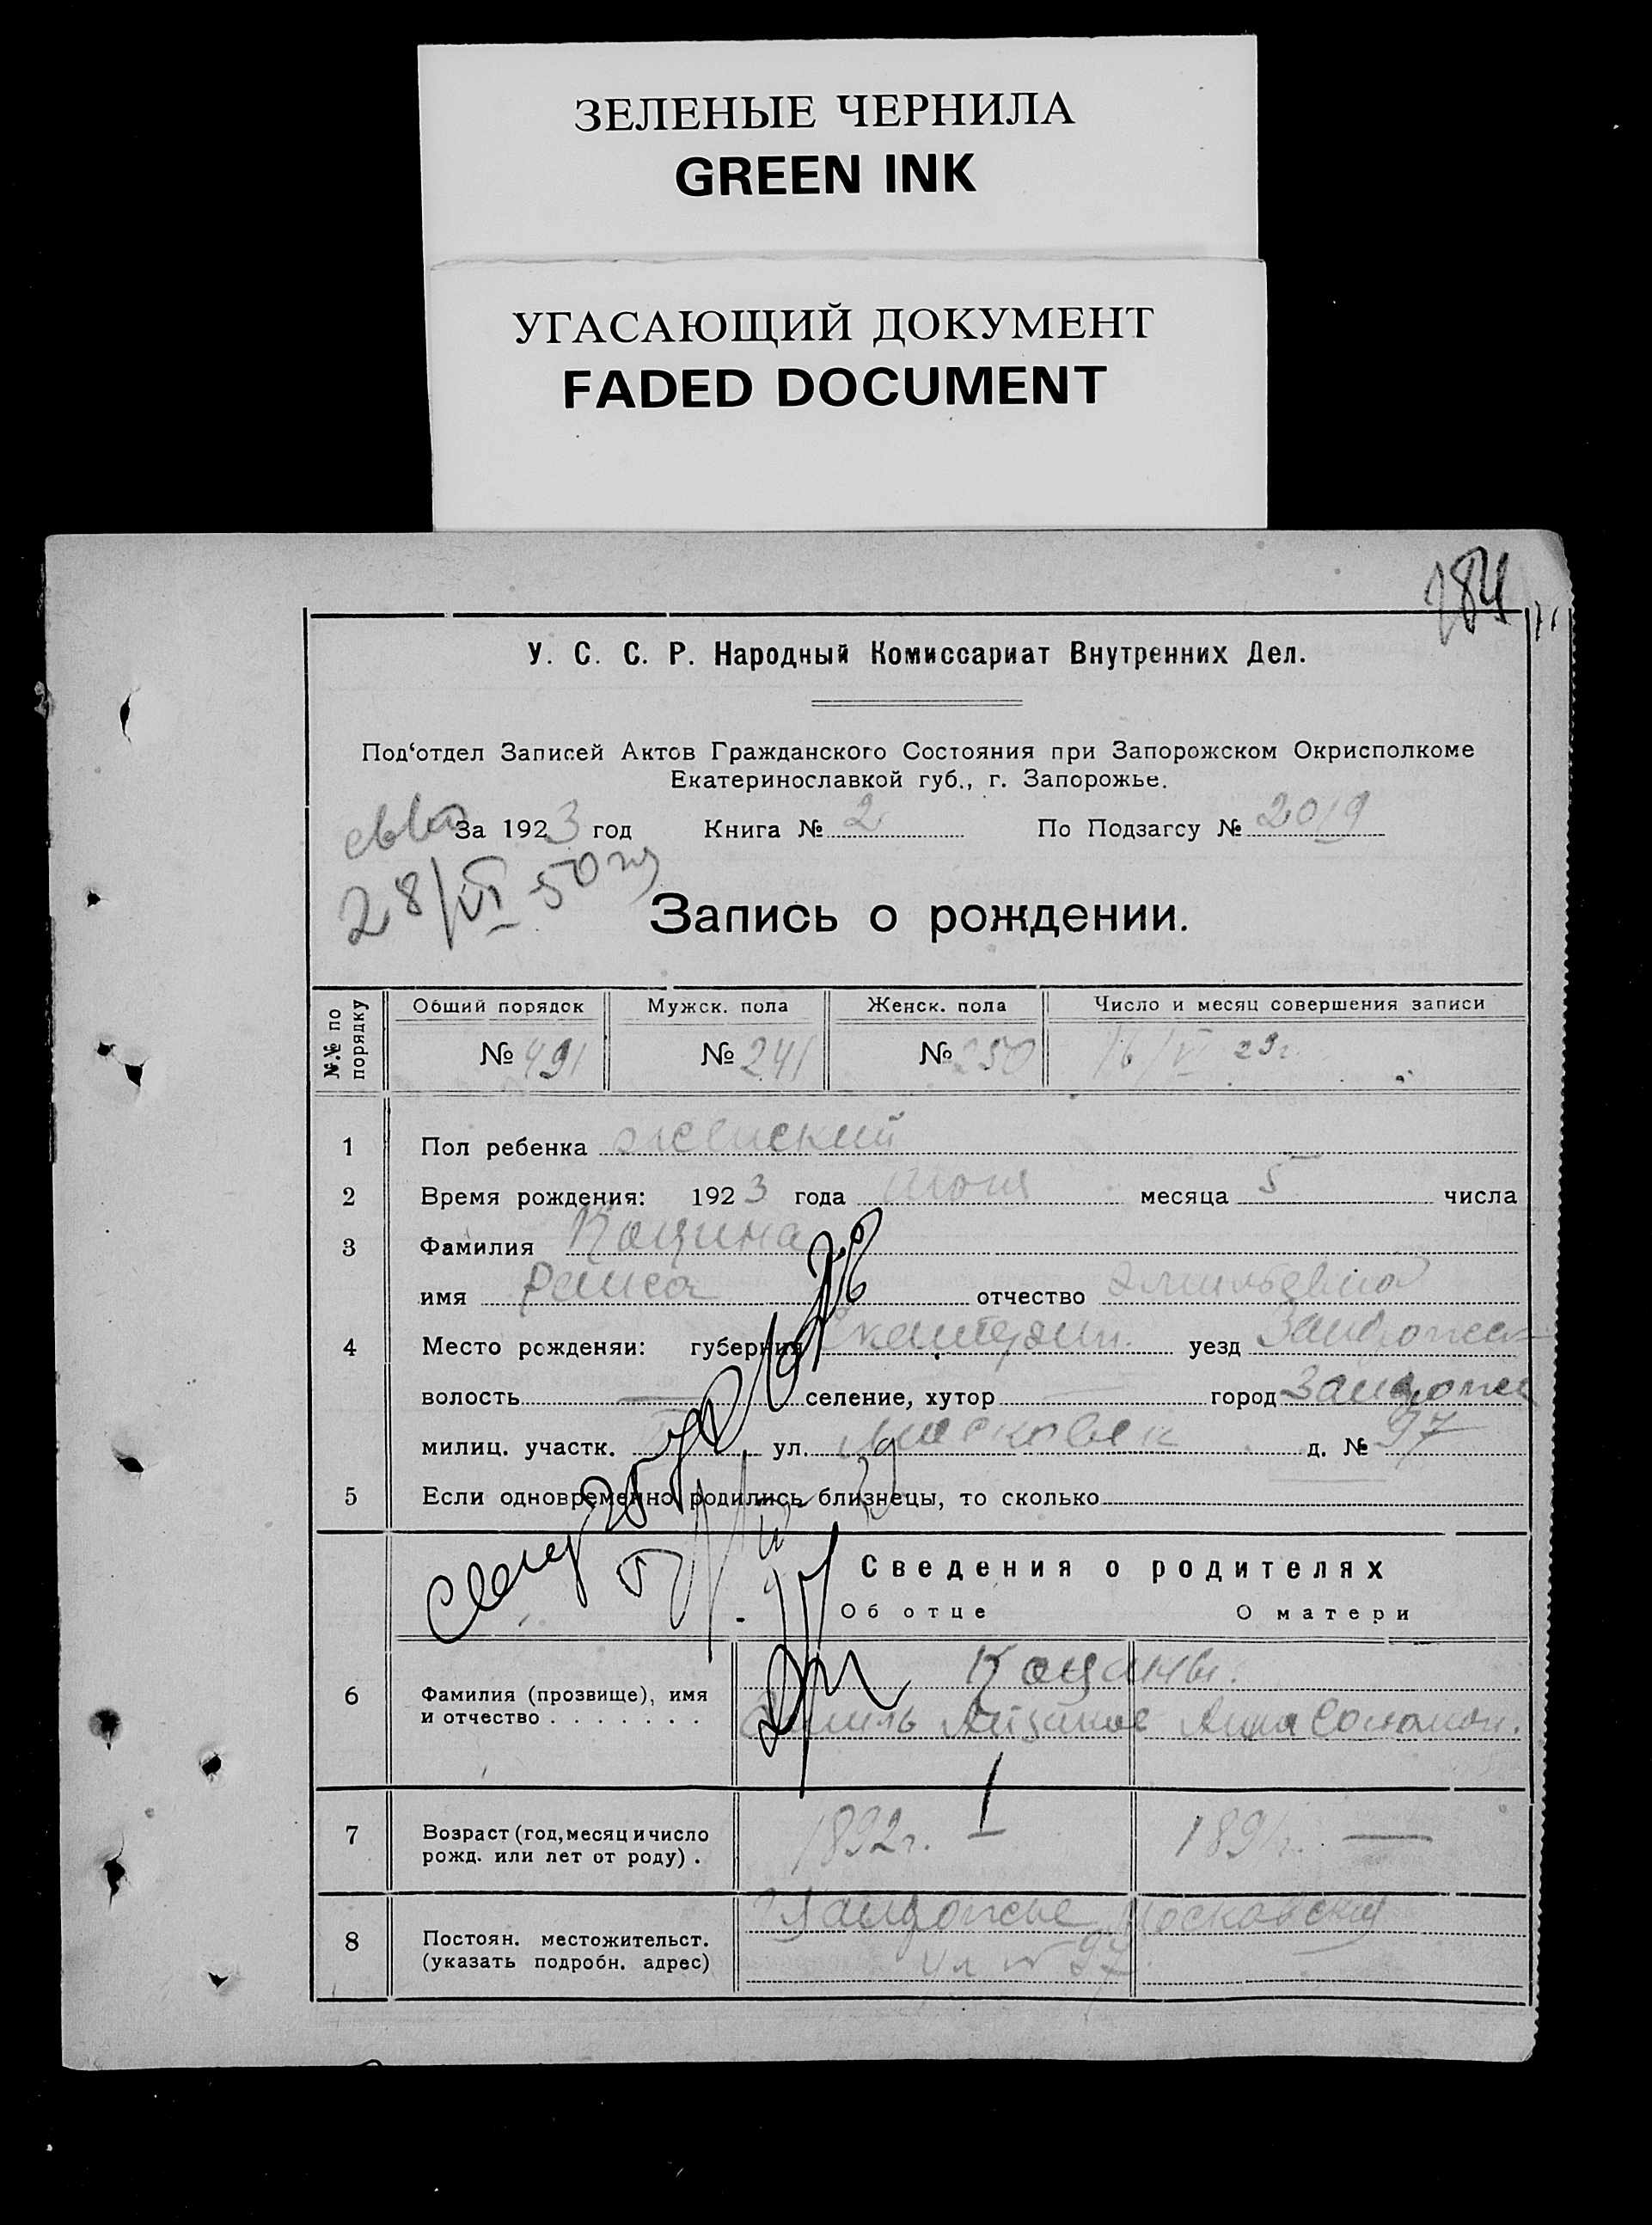 ЗЕЛЕНЫЕ ЧЕРНИЛА
GREEN INK
УГАСАЮЩИЙ ДОКУМЕНТ
FADED DOCUMENT
184
У. С. С. Р. Народный Комиссариат Внутренних Дел.
Под‘отдел Записей Актов Гражданского Состояния при Запорожском Окрисполкоме
Екатеринославкой губ., г. Запорожье.
За 1923 год Книга № 2 По Подзагсу № 2019
28/VI 50
Запись о рождении.
№№ по порядку
Общий порядок Мужск. пола Женск. пола Число и месяц совершения записи
№ 491 № 241 № 250 16/VI 23г.
1 Пол ребенка женский
2 Время рождения: 1923 года июня месяца 5 числа
3 Фамилия Кацина
имя Раиса отчество Эмильевна
4 Место рожденяи: губерния Екатерин. уезд Запорож
волость — селение, хутор — город Запорож
милиц. участк. ул. Московск д. № 97
5 Если одновременно родились близнецы, то сколько
Сведения о родителях
Об отце О матери
Кацины.
6 Фамилия (прозвище), имя
и отчество . . . . . . . Эмиль Айзиков Анна Соломон.
7 Возраст (год, месяц и число
рожд. или лет от роду) . 1892г. 189 г. —
8 Постоян. местожительст.
(указать подробн. адрес)
Запорожье Московская
ул № 97